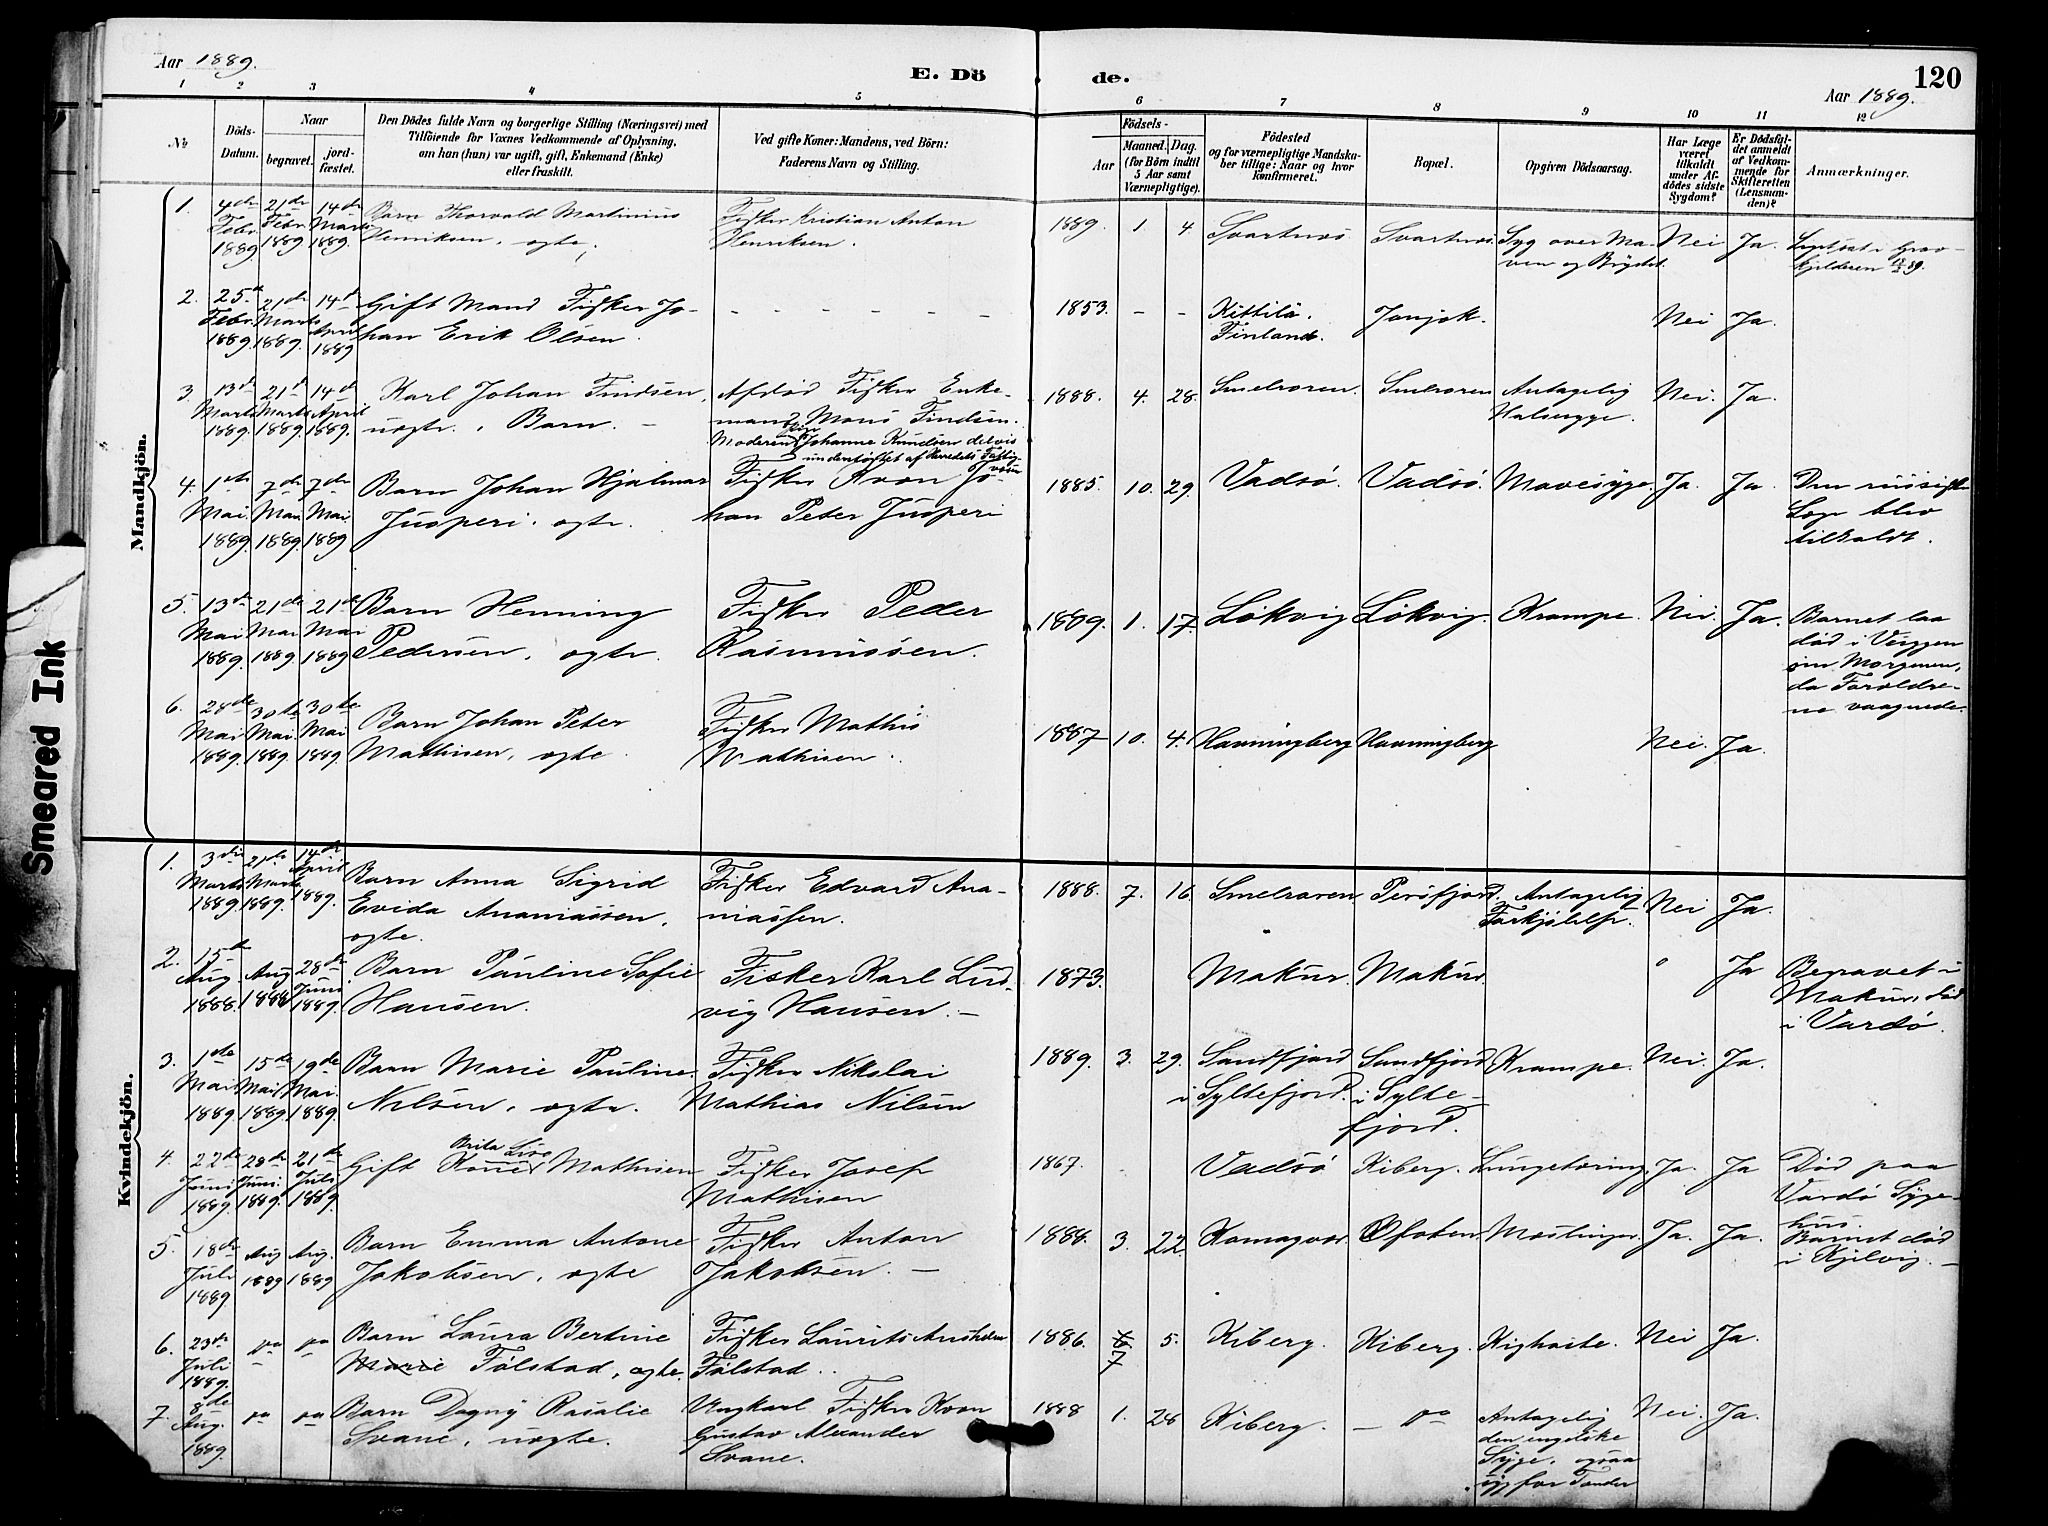 Aar 1889.
E. Dö
de.
Aar 1889.
120
1
2
3
4
5
6
7
8
9
10
11
12
№
Döds-
Datum.
Naar
begravet.
jord-
fæstet.
Den Dödes fulde Navn og borgerlige Stilling (Næringsvei) med
Tilföiende for Voxnes Vedkommende af Oplysning,
om han (hun) var ugift, gift, Enkemand (Enke)
eller fraskilt.
Ved gifte Koner: Mandens, ved Börn:
Faderens Navn og Stilling.
Födsels-
Aar
Maaned. Dag.
(for Börn indtil
5 Aar samt
Værnepligtige).
Födested
og for værnepligtige Mandska-
ber tillige: Naar og hvor
konfirmeret.
Bopæl.
Opgiven Dödsaarsag.
Har Læge
været
tilkaldt
under Af-
dödes sidste
Sygdom?
Er Dödsfal-
det anmeldt
af Vedkom-
mende for
Skifteretten
(Lensman-
den)?
Anmærkninger.
Mandkjön.
1. 4de Febr. 1889 21de Febr. 1889 14de Marts 1889. Barn Thorvald Martinius Fisker Kristian Anton 1889. 1 4. Svartnes. Svartnes. Syg over Ma- Nei Ja.
Henriksen, ægte, Henriksen. ven og Brystet.
2. 25de Febr. 1889. 21de Marts 1889. 14de April 1889 Gift Mand Fisker Jo- - - - - - - 1853. - - Kittilä. Nei Ja.
han Erik Olsen. Finland.
3. 13de Marts 1889. 21de Marts 1889. 14de April 1889. Karl Johan Findsen, Afdød Fisker Enke- 1888. 4. 28. Smelroren. Smelroren Antagelig Nei. Ja.
uægte. Barn. - mand Mons Findsen. Halssyge.
Moderen Johanne Knudsen delvis
understøttet af Herredets Fattig-
væsen
4. 1de Mai. 1889. 7de Mai 1889. 7de Mai. 1889 Barn Johan Hjalmar Fisker Kvæn Jo- 1885. 10. 29. Vadsø. Vadsø. Mavesyge. Ja. Ja Den
Jusperi. ægte. han Peter Jusperi Læge blev
tilkaldt.
5. 13de Mai 1889. 21de Mai 1889. 21de Mai 1889 Barn Henning Fisker Peder 1889. 1. 17. Løkvig Løkvig. Krampe. Nei. Ja. Barnet laa
Pedersen, ægte. Rasmussen. død i Vuggen
om Morgenen,
da Forældre-
ne vaagnede.
6. 28de Mai 1889. 30te Mai. 1889. 30te Mai 1889. Barn Johan Peter Fisker Mathis 1887 10. 4. Havningberg Havningberg Nei. Ja.
Mathisen, ægte Mathisen.
Kvindekjön.
1. 3die Marts 1889 21de Marts 1889. 14de April 1889. Barn Anna Sigrid Fisker Edvard Ana- 1888. 7. 16. Smelroren Persfjord. Antagelig Nei Ja.
Evida Ananiassen, niassen. Forkjølelse
ægte.
2. 15de Aug. 1888. Aug 1888 28de Juni 1889. Barn Pauline Sofie Fisker Karl Lud- 1873. Makur. Makur. Ja Begravet i
Hansen. vig Hansen. - Makur, død
i Vardø.
3. 1de Mai 1889. 15de Mai 1889. 19de Mai. 1889. Barn Marie Pauline Fisker Nikolai 1889. 3. 29. Sandfjord Sandfjord Krampe. Nei. Ja.
Nilsen, ægte. Mathias Nilsen i Syltefjord. i Sylte-
fjord.
4. 22de Juni 1889. 28de Juni. 1889. 21de Juli 1889. Gift Kone Brita Lisa Mathisen Fisker Josef 1867. Vadsø Kiberg. Lungetæring. Ja. Ja Død paa
Mathisen Vardø Syge-
hus.
5. 18de Juli 1889 Aug 1889 Aug. 1889 Barn Emma Antone Fisker Anton 1888. 3. 22. Komagvær. Øfoten. Mæslinger. Ja. Ja. Barnet død
Jakobsen, ægte Jakobsen. - i Kjelvig. -
6. 23de Juli 1889. Barn Laura Bertine Fisker Laurits 1886. 7 5. Kiberg. Kiberg. Kighoste. Nei Ja.
Marie Følstad, ægte. Følstad.
7. 8de Aug. 1889. Barn Dagny Rosalie Ungkarl Fisker Kvæn 1888 1. 28 Kiberg. Antagelig Nei. Ja.
Svane, uægte. Gustav Alexander den engelske
Svane. Syge, ogsaa
syg for Tænder
Smeared Ink